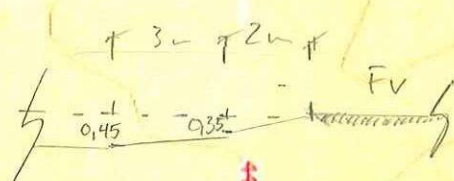 3m 2m
FV
0,45 0,35